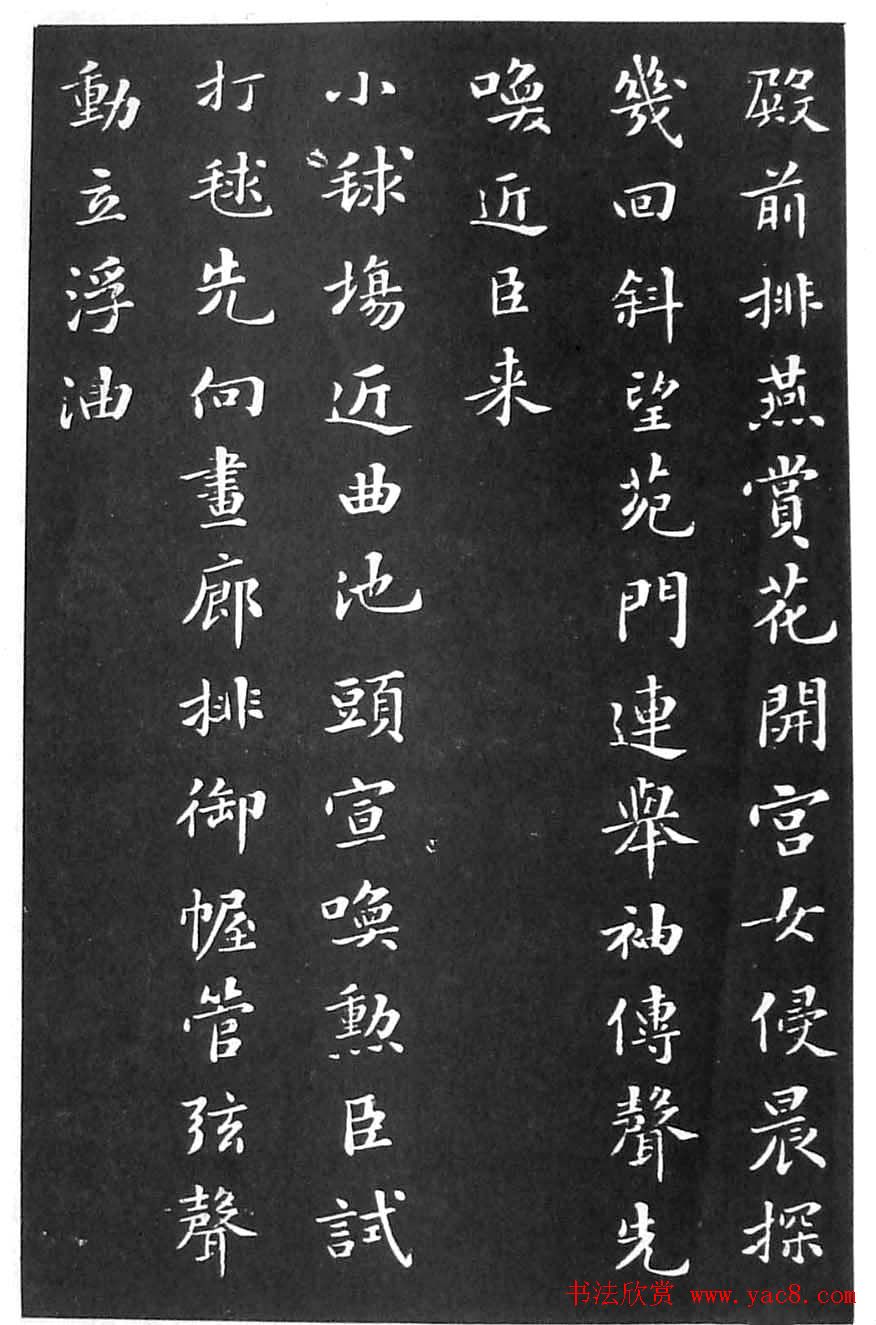 殿前排燕賞花開宮女侵晨探
幾回斜望苑門連舉袖傳聲先
喚近臣来
小毬場近曲池頭宣喚勲臣試
打毬先向畫廊排御幄管弦聲
動立浮油
书法欣赏 www.yac8.com